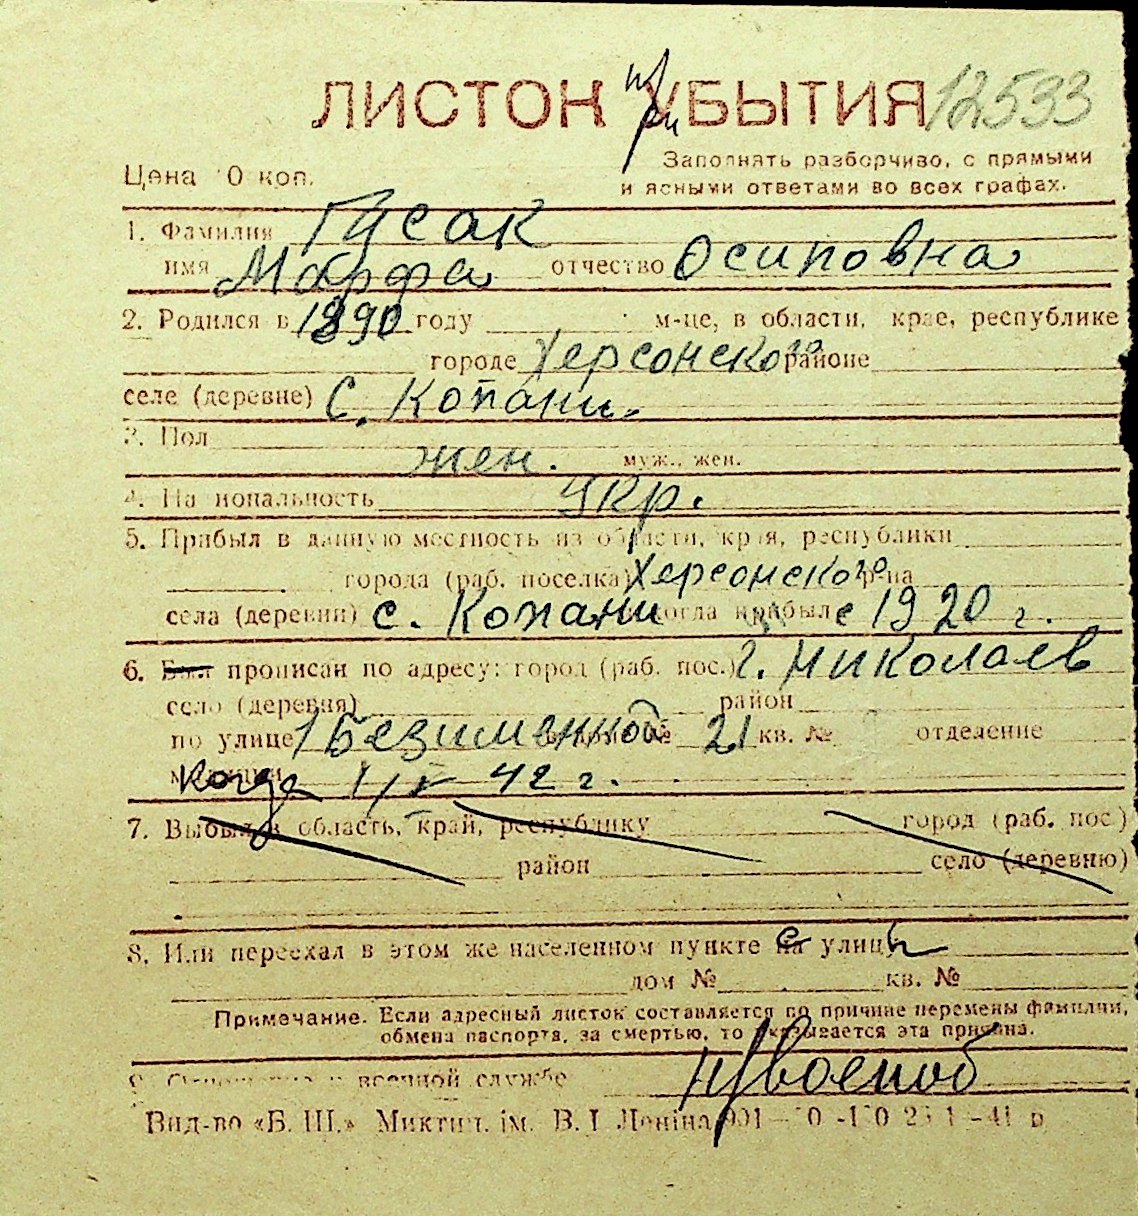 ЛИСТОК при УБЫТИЯ 12533
Цена 0 коп.
Заполнять разборчиво, с прямыми
и ясными ответами во всех графах.
1. Фамилия Гусак
имя Марфа отчество Осиповна
2. Родился в 1890 году м-це, в области, крае, республике
городе Херсонского районе
селе (деревне) с. Копани.
3. Пол
жен. муж., жен.
4. На иональность Укр.
5. Прибыл в данную местность из области, края, республики
города (раб. поселка) Херсонского р-на
села (деревни) с. Копани когда прибыл с 1920 г.
6. Был прописан по адресу: город (раб. пос.) г. Николаев
село (деревня) район
по улице 1 Безименной № 21 кв. № отделение
милиции когда 42 г.
7. Выбыл в область, край, республику город (раб. пос.)
район село (деревню)
8. Или переехал в этом же населенном пункте с на улицы
дом № кв. №
Примечание. Если адресный листок составляется по причине перемены фамилии,
обмена паспорта, за смертью, то указывается эта причина.
9. Отношение к военной службе н/военоб
Вид-во «Б. Ш.» Миктип. ім. В. І. Леніна